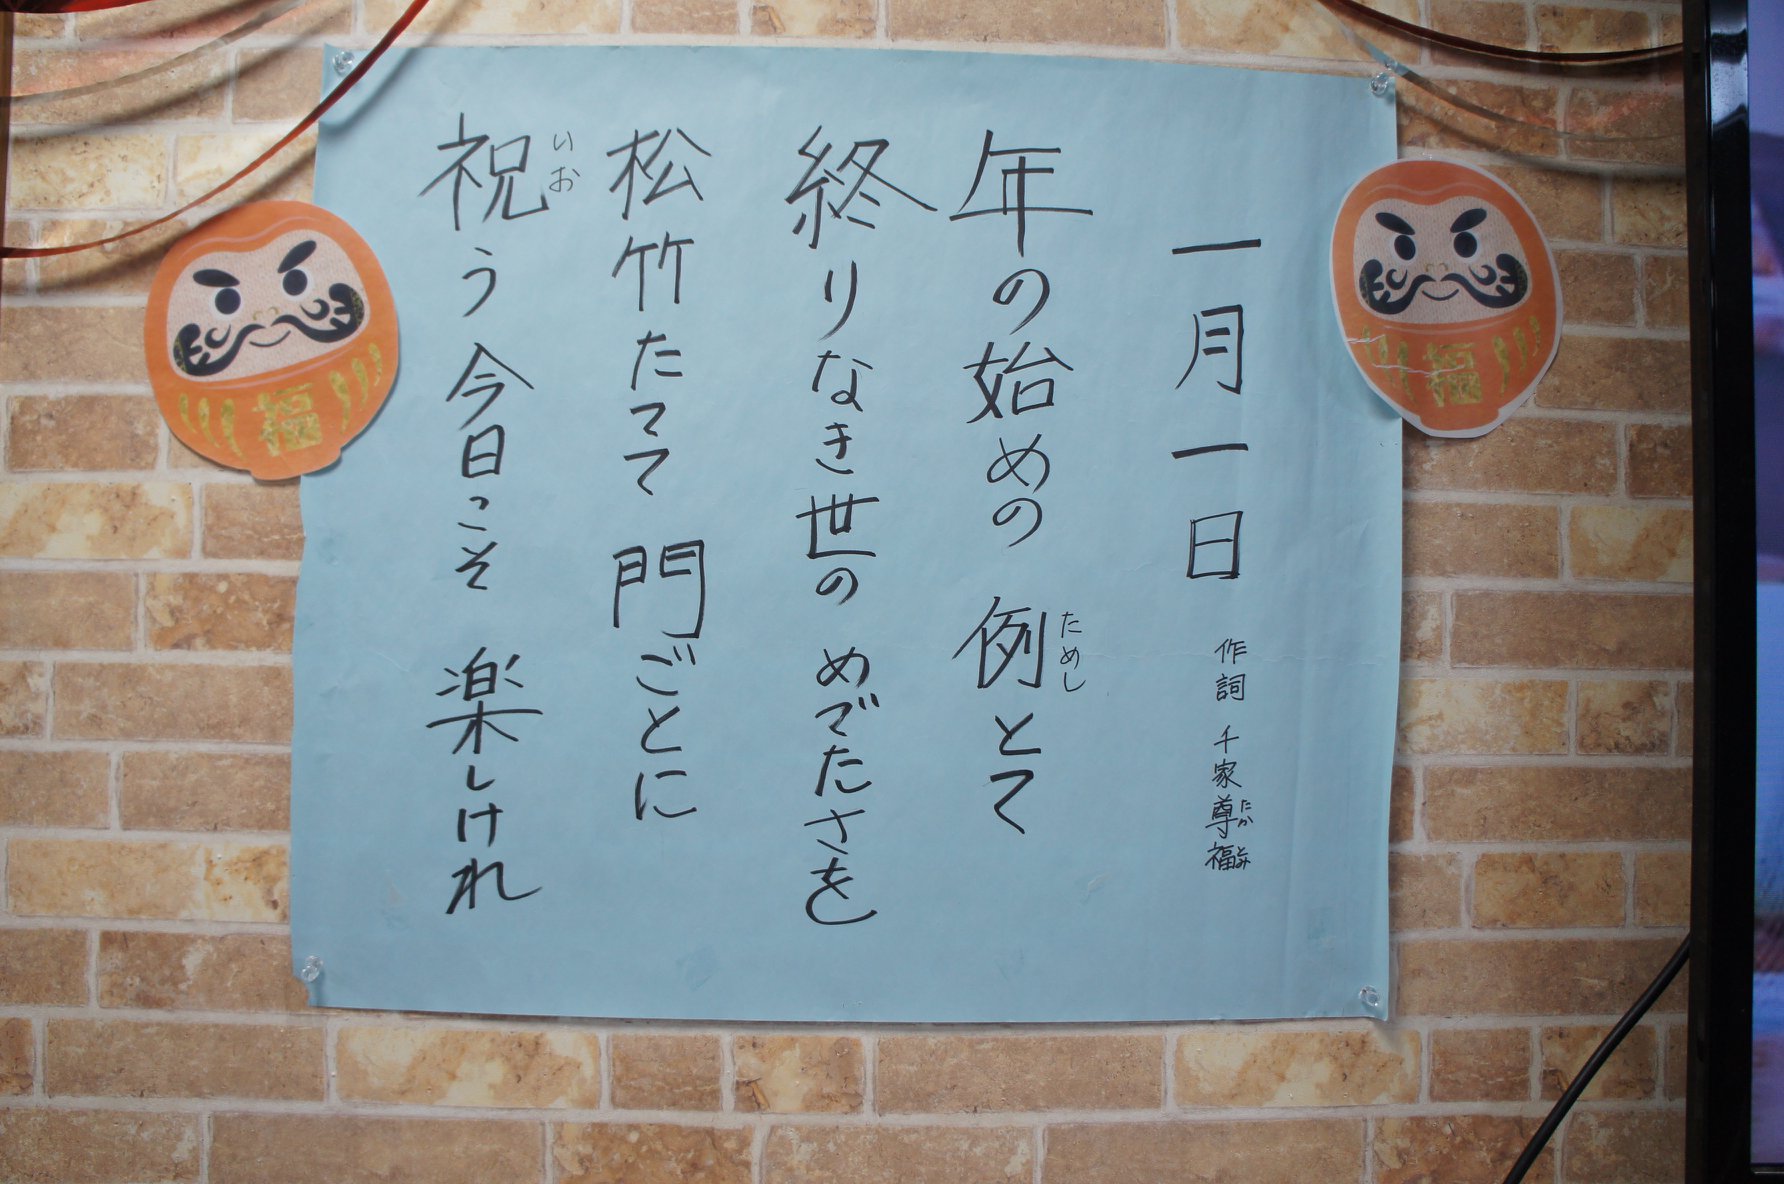 一月一日
作詞 千家尊福
たか
とみ
年の始めの 例とて
ためし
終りなき世の めでたさを
松竹たてて 門ごとに
祝う今日こそ 楽しけれ
いお
福
福